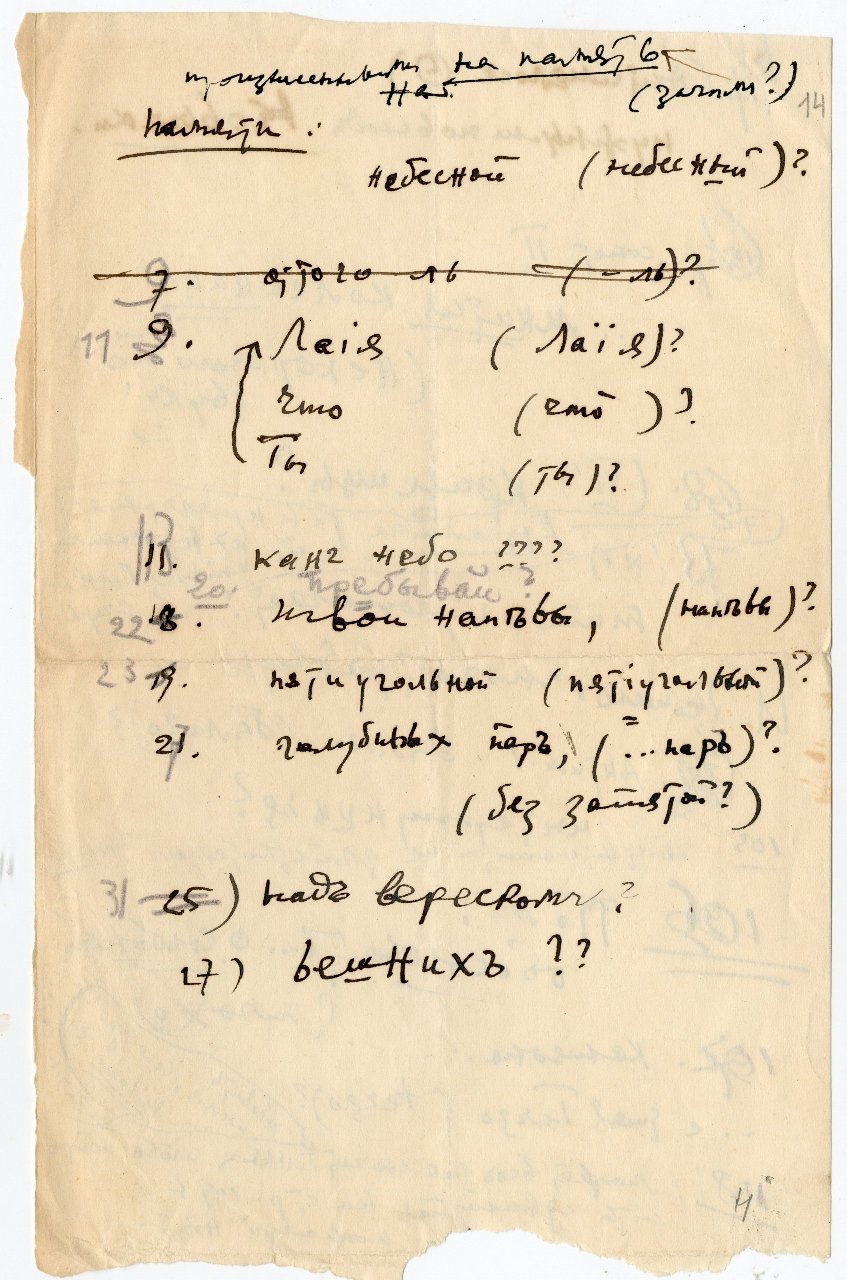 на память
(зачем?)
14
Памяти :
небесной (небесный)?
9
7. этого ль (-ль)?
11 9. Лаiя (Лаïя)?
что (что)?
Ты (ты)?
11. небо ????
20. пребывай?
22 18. твои напѣвы, (напѣвы)?
23 19. пятиугольной (пятiугольной)?
21. голубиныхъ перъ, (...перъ)?
(без запятой?)
31 25) надъ верескомъ?
27) вешнихъ ??